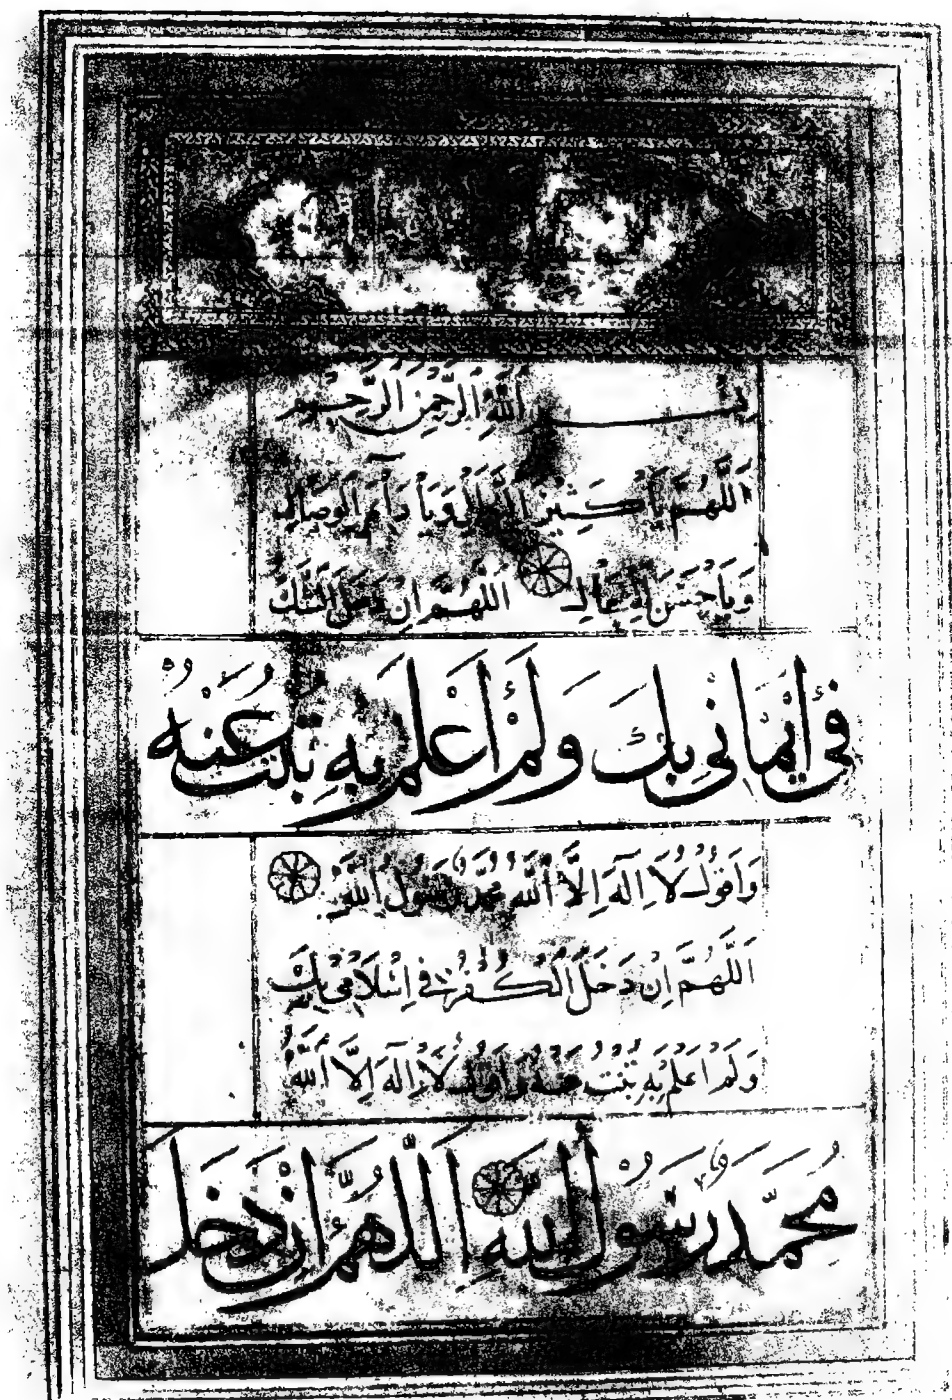 بِسْمِ اللَّهِ الرَّحْمٰنِ الرَّحِيمِ
اَللّٰهُمَّ يَا كَثِيرَ النَّوَالِ وَيَا دَائِمَ الْوِصَالِ
وَيَا حَسَنَ الْفِعَالِ اَللّٰهُمَّ اِنْ دَخَلَ الشَّكُّ
فِي اِيْمَانِي بِكَ وَلَمْ اَعْلَمْ بِهِ تُبْتُ عَنْهُ
وَاَقُولُ لَا اِلٰهَ اِلَّا اللّٰهُ مُحَمَّدٌ رَسُولُ اللّٰهِ
اَللّٰهُمَّ اِنْ دَخَلَ الْكُفْرُ فِي اِسْلَامِي بِكَ
وَلَمْ اَعْلَمْ بِهِ تُبْتُ عَنْهُ وَاَقُولُ لَا اِلٰهَ اِلَّا اللّٰهُ
مُحَمَّدٌ رَسُولُ اللّٰهِ اَللّٰهُمَّ اِنْ دَخَلَ